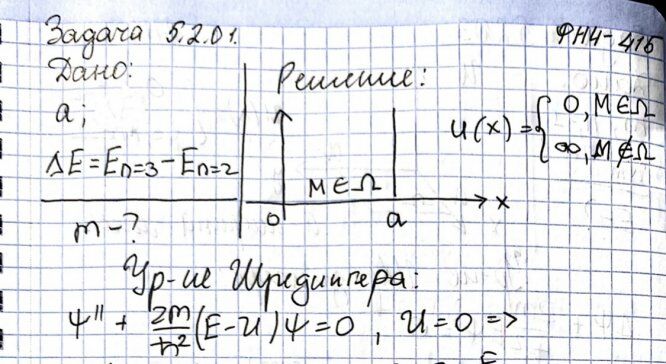 Задача 5.2.01. ФН4-41Б
Дано:
a;
ΔE = E n=3 − E n=2
m - ?
Решение:
U(x) = { 0, M ∈ Ω
∞, M ∉ Ω
M ∈ Ω
0 a x
Ур-ие Шредингера:
Ψ'' + 2m/ħ² (E - U) Ψ = 0 , U = 0 =>